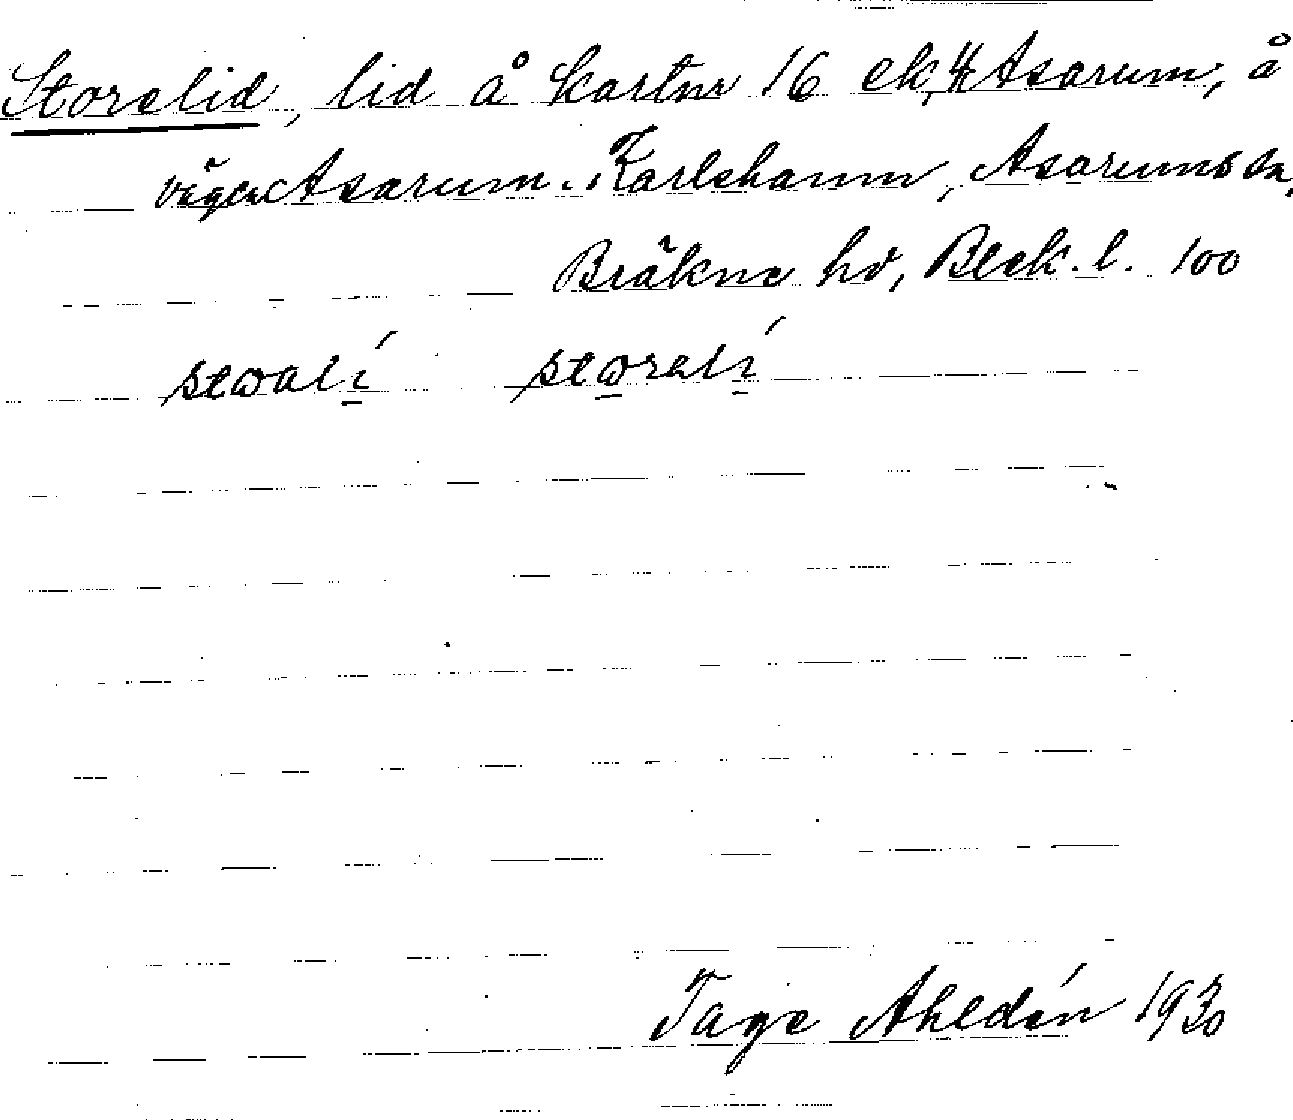 Storelid, lid å kartnr 16 ek, 4 Asarum, å
vägen Asarum - Karlshamn, Asarums sn,
Bräkne hd, Blek. l. 100
Tage Ahldén 1930